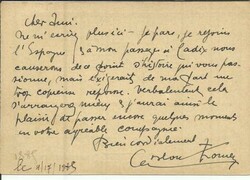 Cher Ami.
Ne m'écrivez plus ici - Je pars, je rejoins
l'Espagne & à mon passage à Cadix nous
causerons de ce point d'histoire qui vous pas-
sionne, mais exigerait de ma part une
trop copieuse réponse. Verbalement cela
s'arrangera mieux & j'aurai ainsi le
plaisir de passer encore quelques moments
en votre agréable compagnie.
Bien cordialement